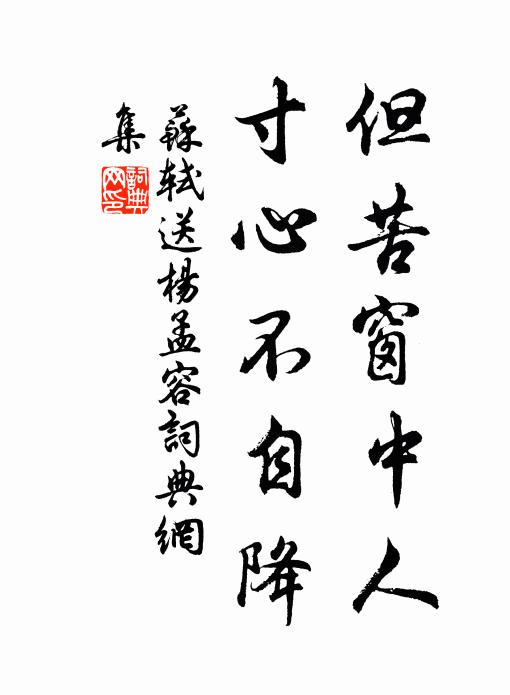 但苦窗中人
寸心不自降
蘇軾送楊孟容詞典網
集
詞典網印